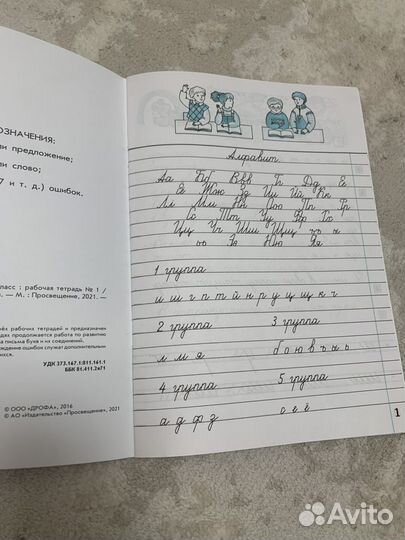 ОЗНАЧЕНИЯ:
ли предложение;
ли слово;
7 и т. д.) ошибок.
ласс : рабочая тетрадь № 1 /
— М. : Просвещение, 2021. —
рабочих тетрадей и предназначен
продолжается работа по развитию
письма букв и их соединений.
ждение ошибок служат дополнительным
УДК 373.167.1:811.161.1
ББК 81.411.2я71
© ООО «ДРОФА», 2016
© АО «Издательство «Просвещение», 2021
Алфавит
Аа Бб Вв Гг Дд Ее
Ёё Жж Зз Ии Йй Кк
Лл Мм Нн Оо Пп Рр
Сс Тт Уу Фф Хх
Цц Чч Шш Щщ ъ ы
ь Ээ Юю Яя
1 группа
и ш г п т й н р у ц щ к ч
2 группа 3 группа
л м я б ю в ъ ы ь
4 группа 5 группа
а д ф з
1
Avito